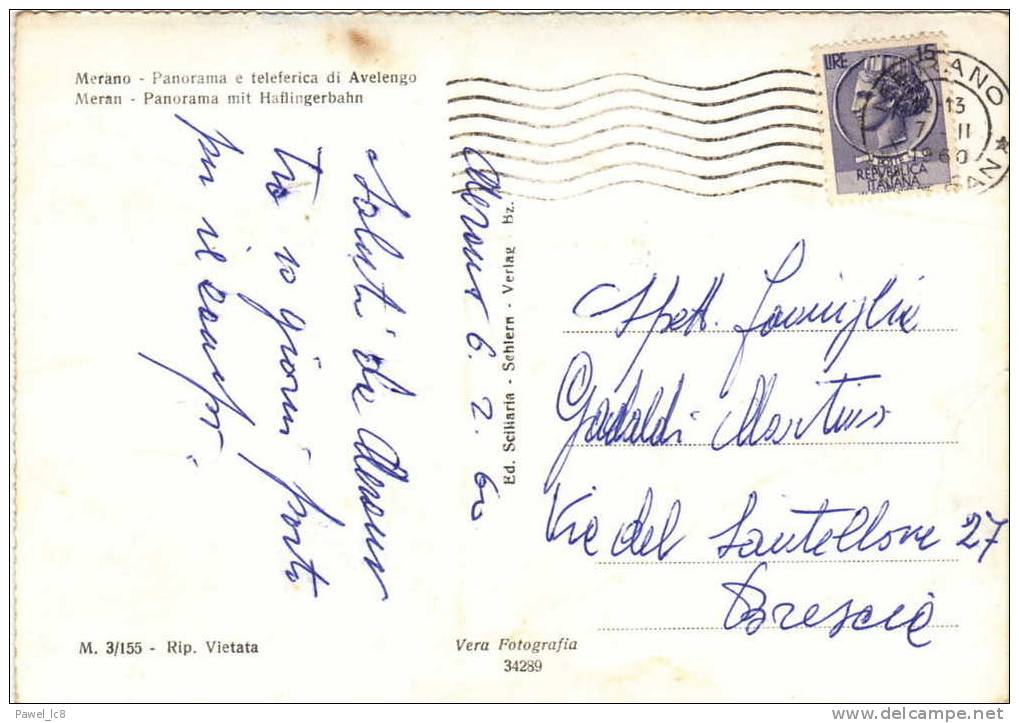 Merano - Panorama e teleferica di Avelengo
Meran - Panorama mit Haflingerbahn
Merano 6. 2. 60
Saluti da Merano
tra 10 giorni porto
su il
Ed. Sciliaria - Schlern - Verlag - Bz.
LIRE 15
REPUBBLICA
ITALIANA
13
7 II
1960
Spett. Famiglia
Gadaldi Martino
Via del Santellone 27
Brescia
M. 3/155 - Rip. Vietata
Vera Fotografia
34289
Pawel_lc8
www.delcampe.net